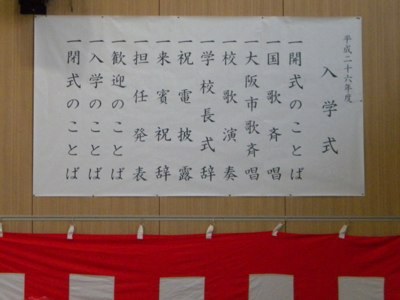 平成二十六年度
入学式
一開式のことば
一国歌斉唱
一大阪市歌斉唱
一校歌演奏
一学校長式辞
一祝電披露
一来賓祝辞
一担任発表
一歓迎のことば
一入学のことば
一閉式のことば